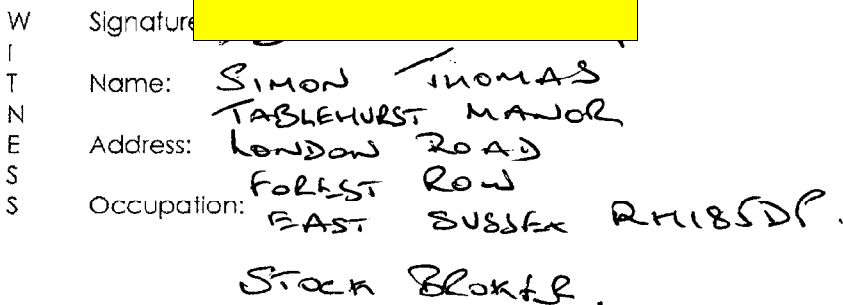 WITNESS
Signature
Name: SIMON THOMAS
TABLEHURST MANOR
Address: LONDON ROAD
FOREST ROW
Occupation: EAST SUSSEX RH185DP.
STOCK BROKER.